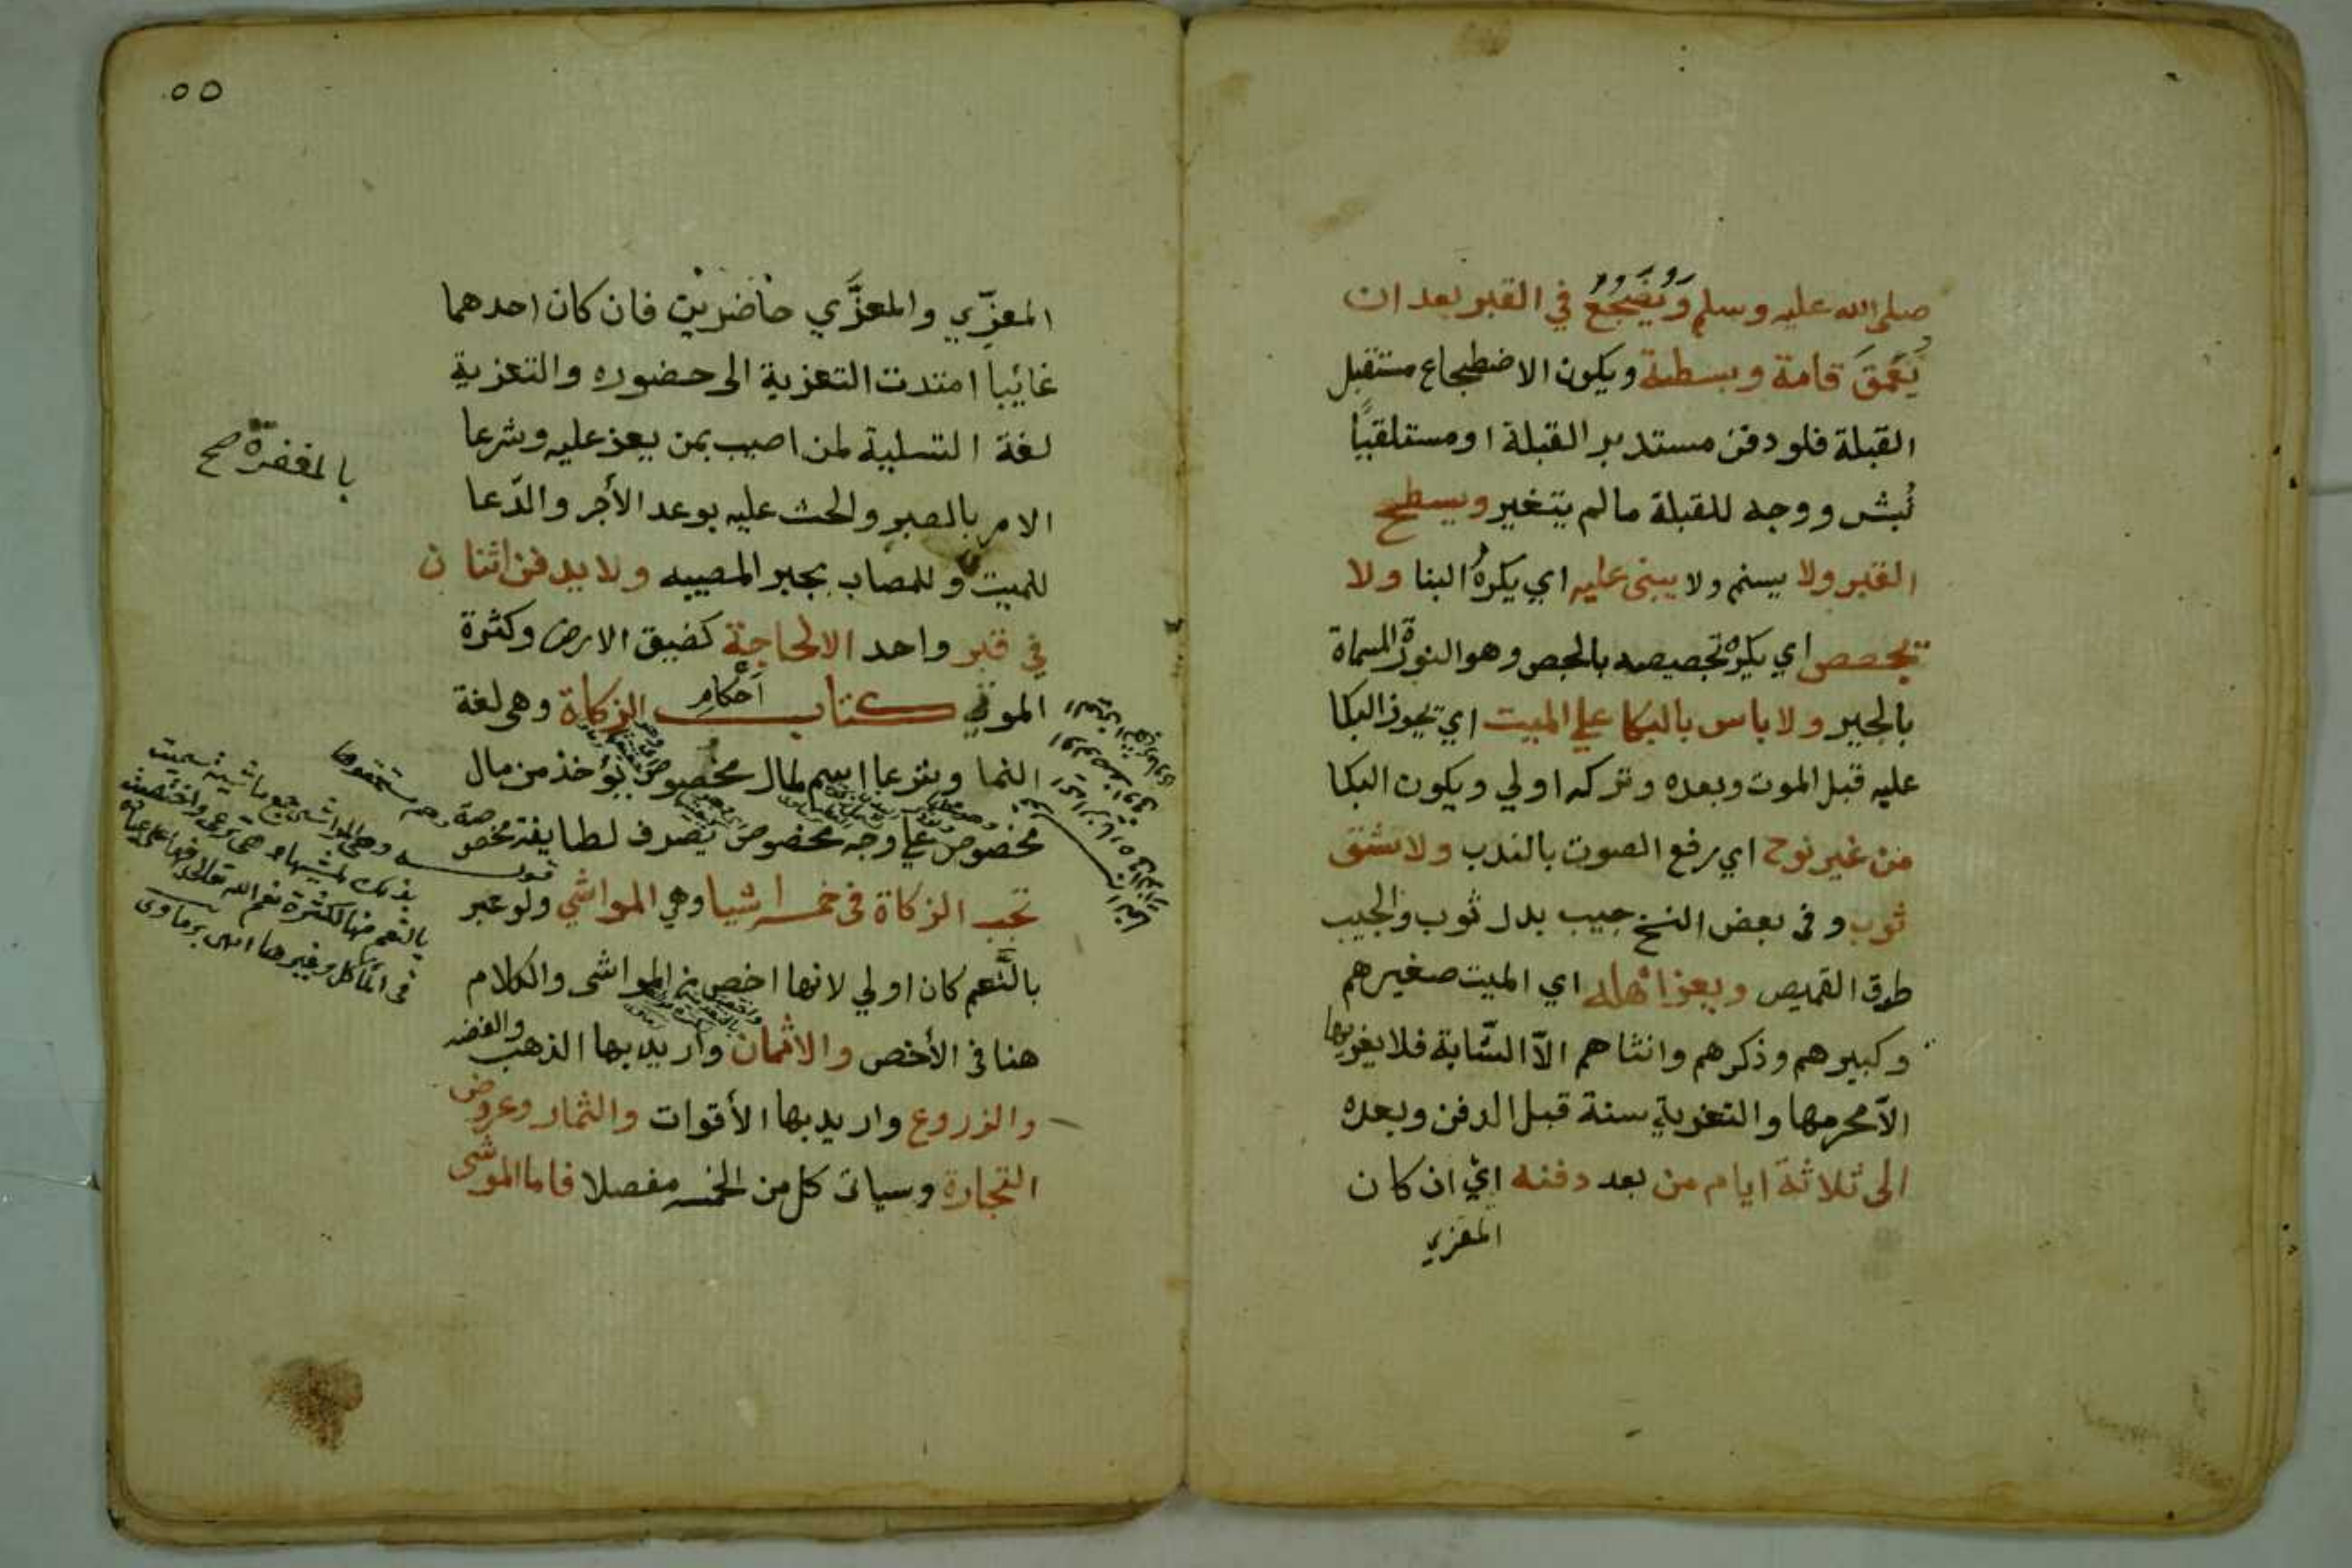 صلى الله عليه وسلم ويضجع في القبر بعد ان
يعمق قامة وبسطة ويكون الاضطجاع مستقبل
القبلة فلو دفن مستدبر القبلة او مستلقيًا
نُبش ووجه للقبلة مالم يتغير ويسطح
القبر ولا يسنم ولا يبنى عليه اي يكره البنا ولا
يجصص اي يكره تجصيصه بالجص وهو النورة المسماة
بالجير ولا باس بالبكا علي الميت اي يجوز البكا
عليه قبل الموت وبعده وتركه اولي ويكون البكا
من غير نوح اي رفع الصوت بالندب ولا شق
ثوب وفي بعض النسخ جيب بدل ثوب والجيب
طوق القميص ويعزا اهله اي الميت صغيرهم
وكبيرهم وذكرهم وانثاهم الاّ الشّابة فلا يعزيها
الاّ محرمها والتعزية سنة قبل الدفن وبعده
الى ثلاثة ايام من بعد دفنه اي ان كان
المعزي
٥٥
المعزّي والمعزَّي حاضرين فان كان احدهما
غائيبا امتدت التعزية الى حضوره والتعزية
لغة التسلية لمن اصيب بمن يعز عليه وشرعا
الامر بالصبر والحث عليه بوعد الأجر والدّعا
للميت وللمصاب بجبر المصيبه ولا يدفن اثنان
في قبر واحد الا لحاجة كضيق الارض وكثرة
الموتي كتاب أحكام الزكاة وهي لغة
النما وشرعا اسم لمال مخصوص يؤاخذ من مال
مخصوص علي وجه مخصوص يصرف لطايفة مخصوصة
تجب الزكاة في خمسة اشيا وهي المواشي ولو عبر
بالنَّعم كان اولي لانها اخص من المواشى والكلام
هنا في الأخص والاثمان واريد بها الذهب والفضه
والزروع واريد بها الأقوات والثمار وعروض
التجارة وسياتى كل من الخمسه مفصلا فاما المواشى
بالمغفرة صح
وهم مستحقوها
قوله وهي المواشي جمع ماشية سميت
بذلك لمشيها وهى ترعى واختصت
بالنعم منها لكثرة نعم الله تعالى فيها على عباده
في المأكل وغيرها انتهى برماوى